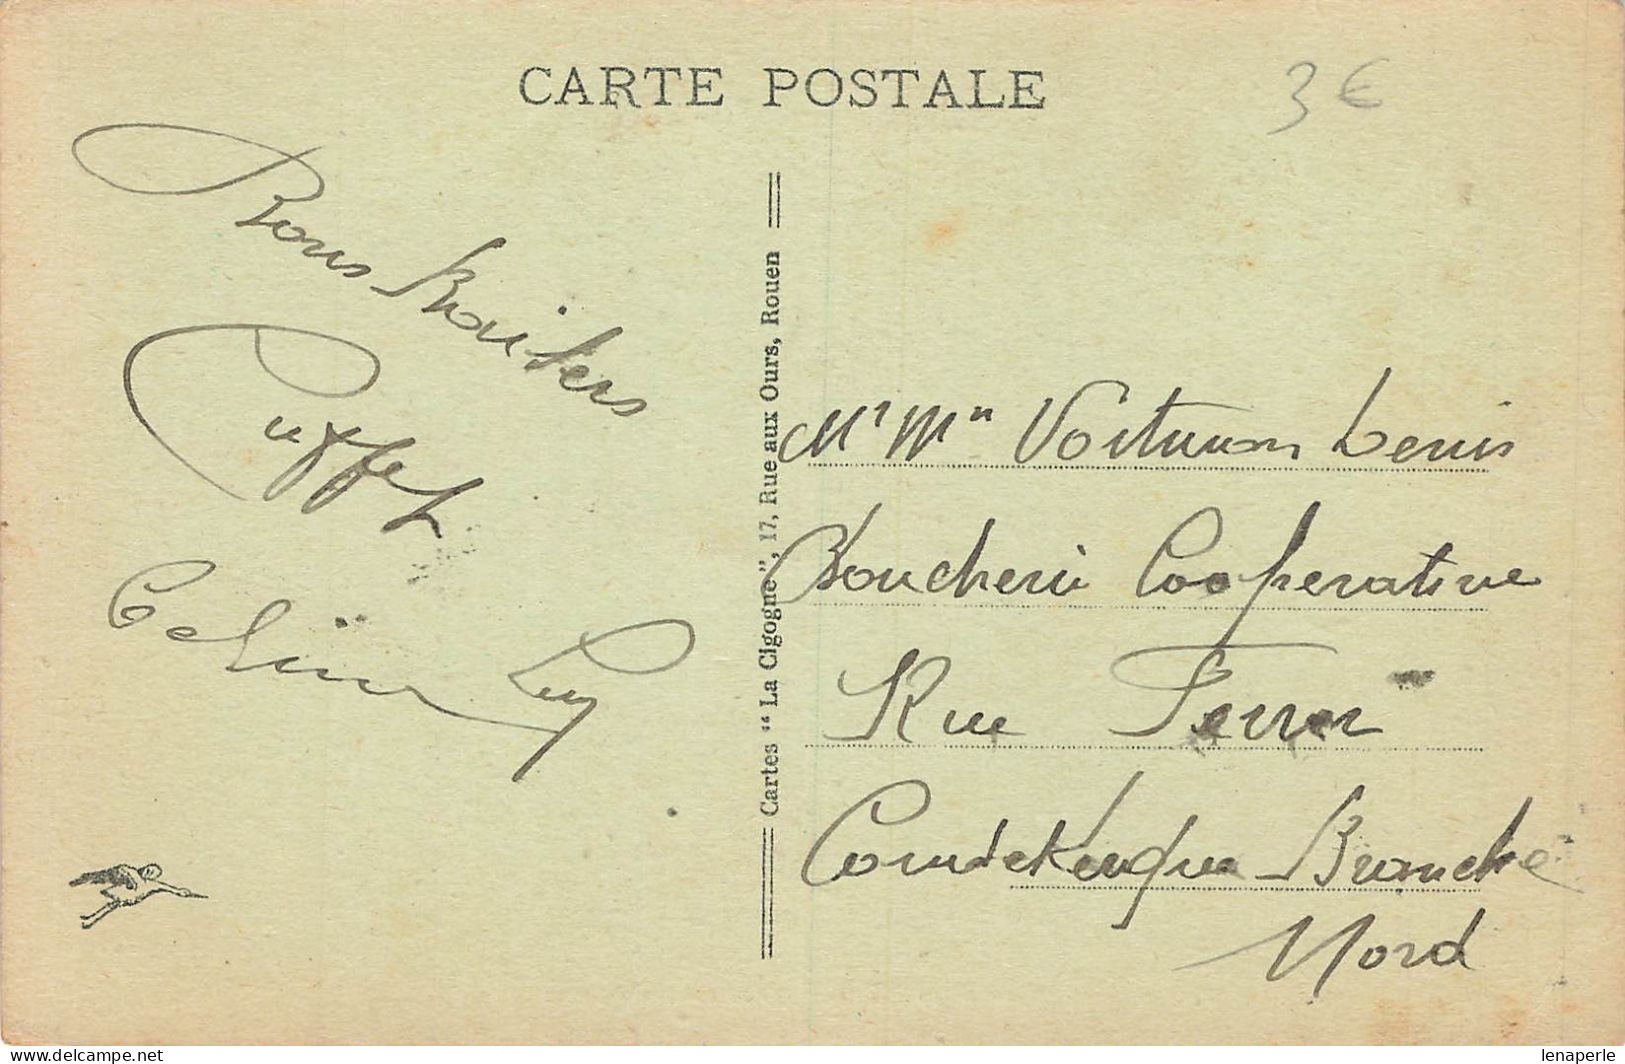 CARTE POSTALE
3 €
Bons Baisers
Celine
Cartes "La Cigogne", 17, Rue aux Ours, Rouen
Mr Mm Denis
Boucherie Cooperative
Rue Ferrer
Coudekerque-Branche
Nord
delcampe.net
lenaperle